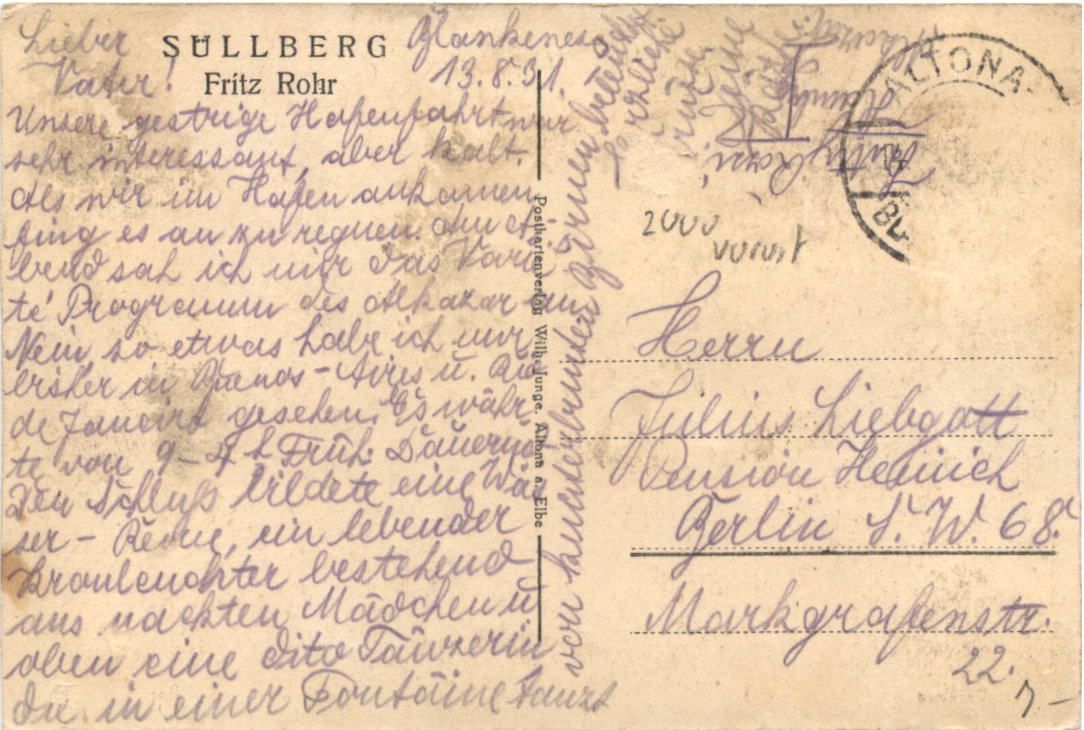 Lieber
Vater!
SÜLLBERG
Fritz Rohr
Blankenese
13.8.31.
Unsere gestrige Hafenfahrt war
sehr interessant, aber kalt.
Als wir im Hafen ankamen
fing es an zu regnen. Am A-
bend sah ich mir das Varie-
té Programm des Alkazar an
Nein, so etwas habe ich nur
bisher in Buenos-Aires u. Rio
de Janeiro gesehen. Es währ-
te von 9-4 h Früh.
Den Schluß bildete eine Was-
ser-Revue, ein lebender
bestehend
aus nackten Mädchen u
oben eine dito Tänzerin
die in einer Fontaine tanzt
von hunderten
herzliche
Grüsse
Deine
Postkartenverlag Wilh. Junge, Altona a. Elbe
ALTONA
2000
Herrn
Julius Liebgott
Pension Heinich
Berlin S.W. 68.
Markgrafenstr.
22.
7.-